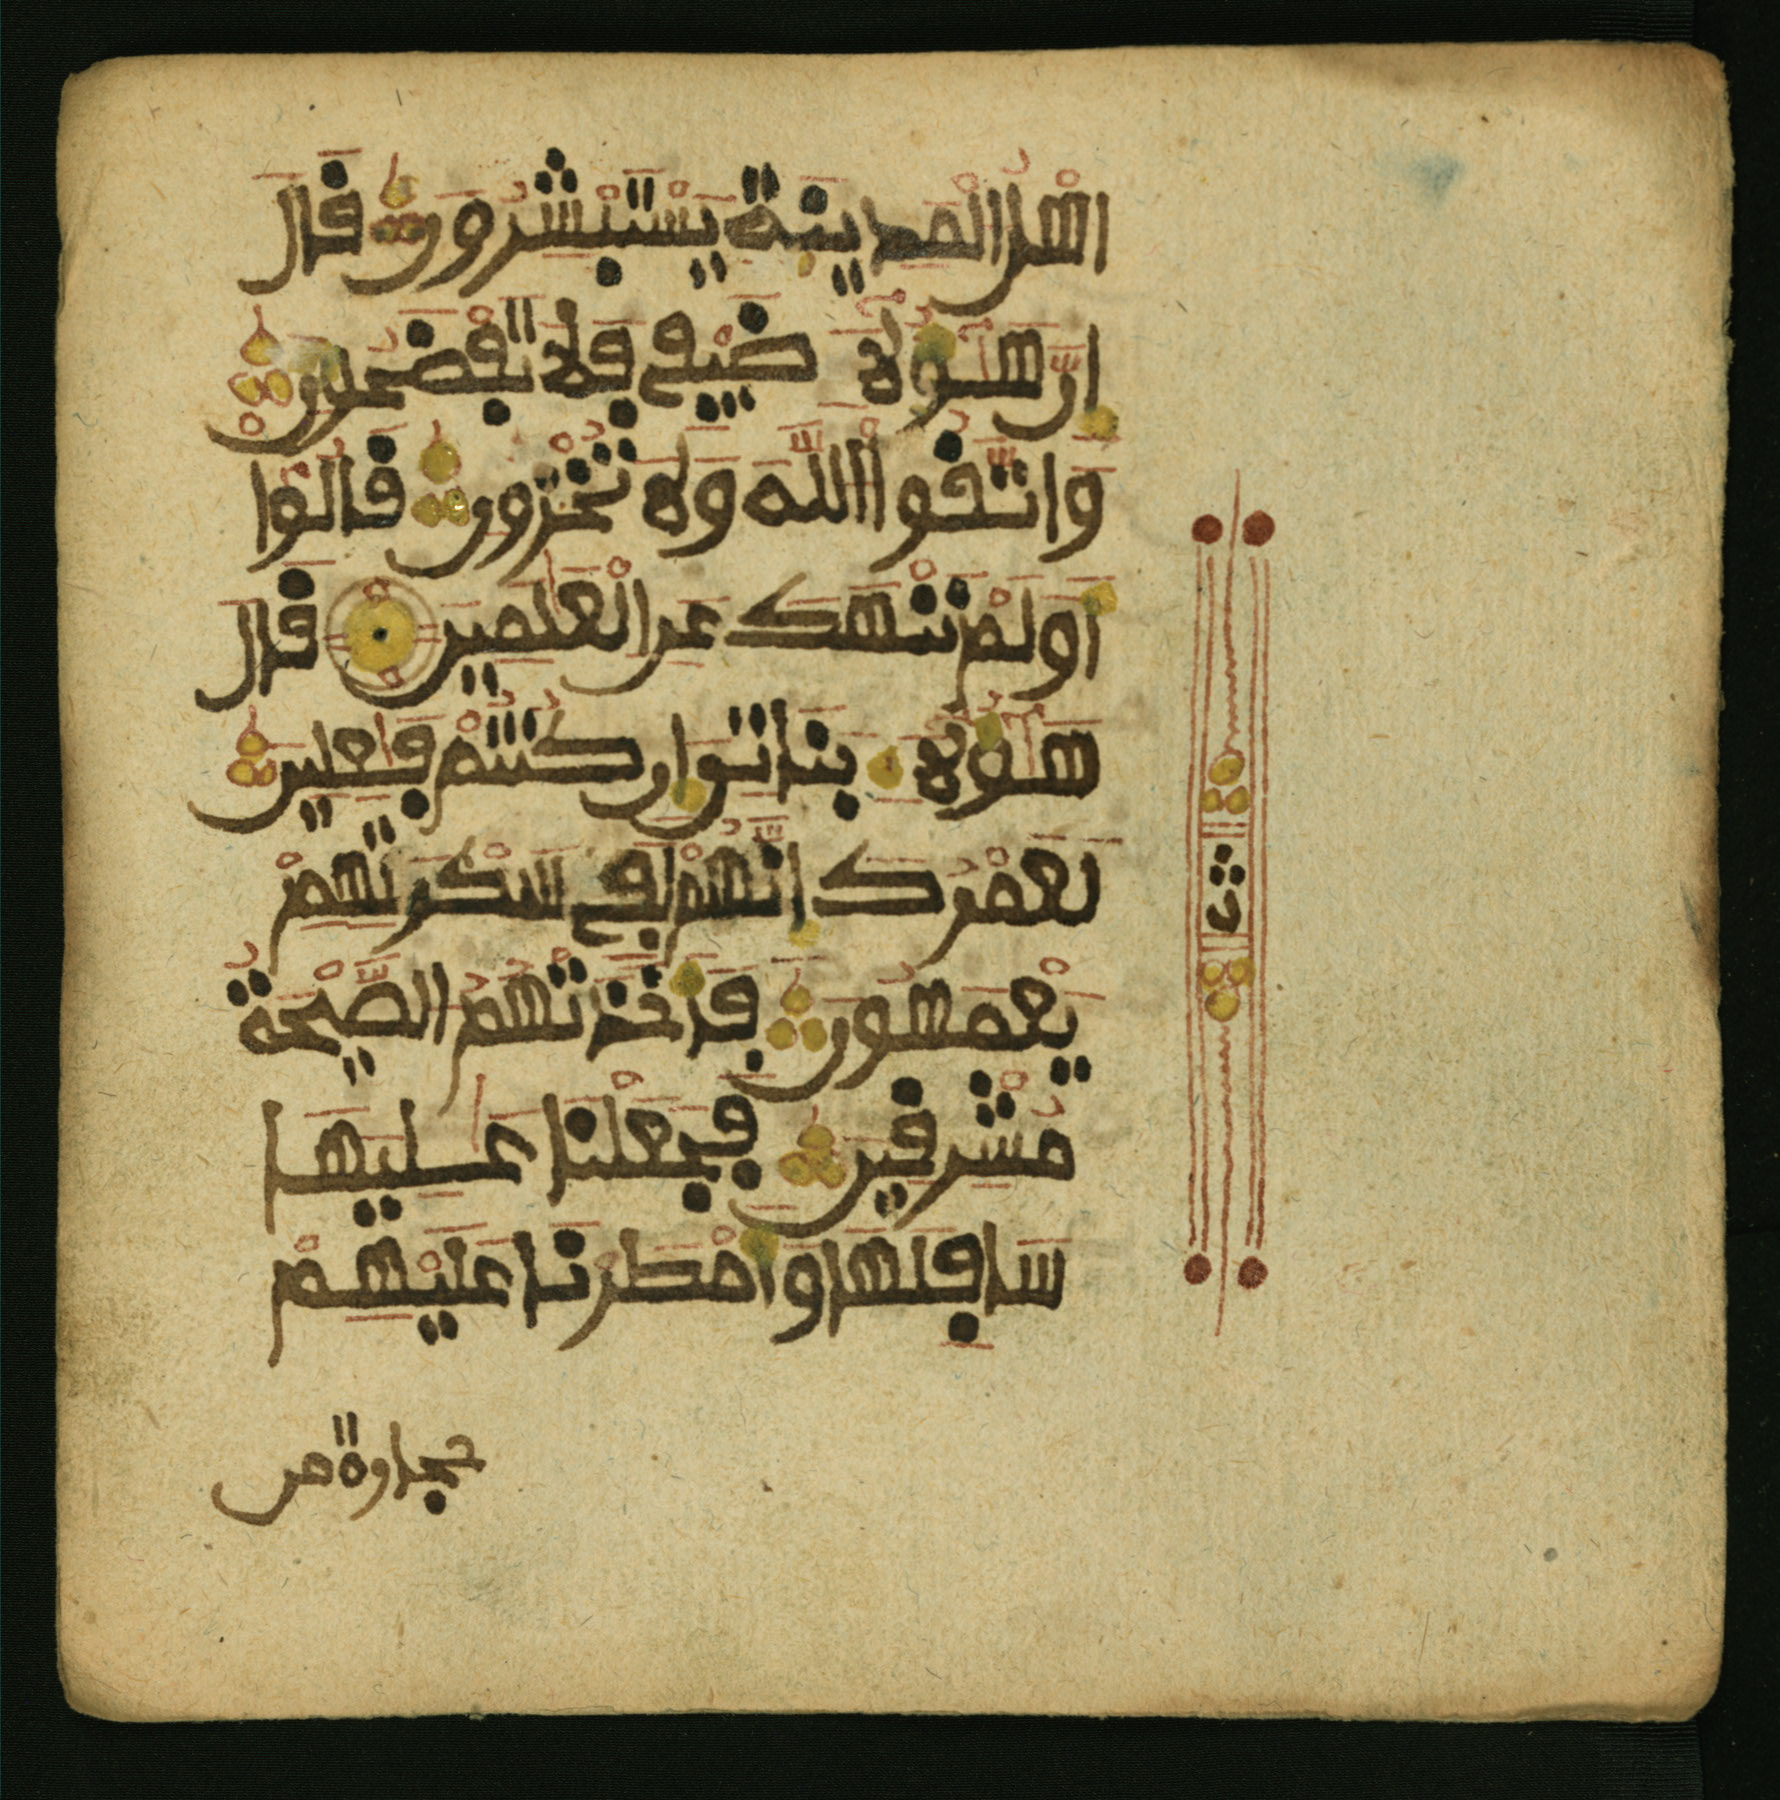 اهْلُ الْمَدِينَةِ يَسْتَبْشِرُونَ قَالَ
اِنَّ هَٰؤُلَآءِ ضَيْفِے فَلَا تَفْضَحُونِ
وَاتَّقُوا اْللَّهَ وَلَا تُخْزُونِ قَالُوٓا
أَوَلَمْ نَنْهَكَ عَنِ الْعَٰلَمِينَ قَالَ
هَٰٓؤُلَآءِ بَنَاتِےَ إِن كُنتُمْ فَٰعِلِينَ
لَعَمْرُكَ إِنَّهُمْ لَفِے سَكْرَتِهِمْ
يَعْمَهُونَ فَأَخَذَتْهُمُ الصَّيْحَةُ
مُشْرِقِينَ فَجَعَلْنَا عَٰلِيَهَا
سَافِلَهَا وَأَمْطَرْنَا عَلَيْهِمْ
ث
حجارة من